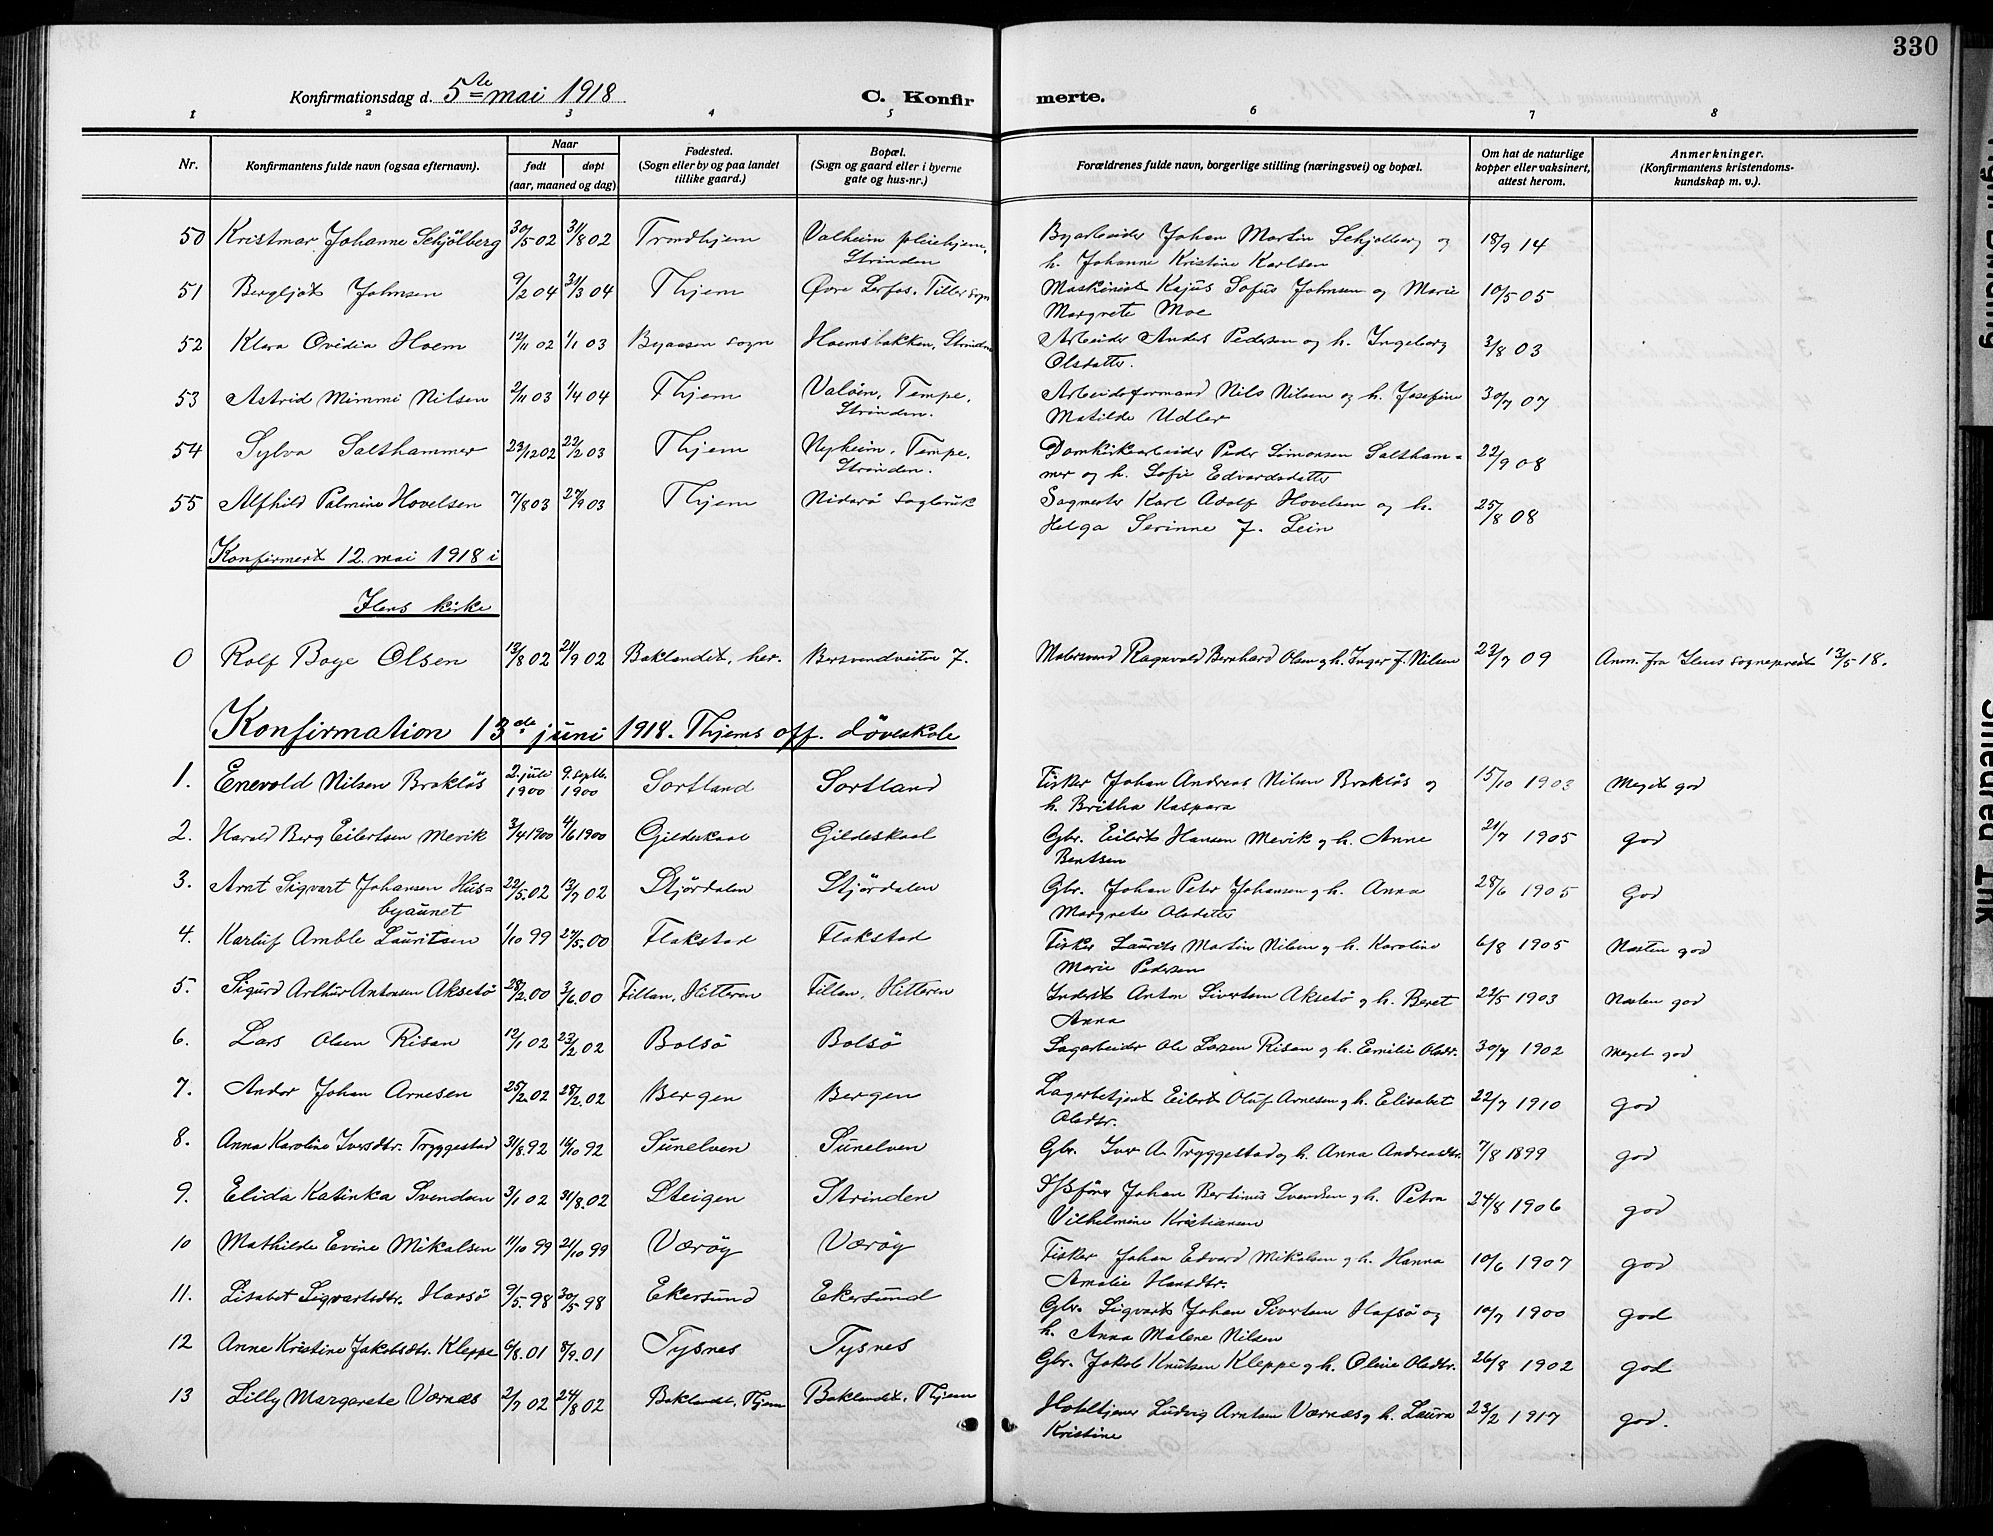 330
Konfirmationsdag d. 5te mai 1918
C. Konfirmerte.
1 2 3 4 5 6 7 8
Nr. Konfirmantens fulde navn (ogsaa efternavn). Naar født døpt (aar, maaned og dag) Fødested. (Sogn eller by og paa landet tillike gaard.) Bopæl. (Sogn og gaard eller i byerne gate og hus-nr.) Forældrenes fulde navn, borgerlige stilling (næringsvei) og bopæl. Om hat de naturlige kopper eller vaksinert, attest herom. Anmerkninger. (Konfirmantens kristendomskundskap m. v.).
50 Kristmar Johanne Schjölberg 30/5 02 31/8 02 Trondhjem Valheim pleiehjem, Strinden Byarbeider Johan Martin Schjølberg og h. Johanne Kristine Karlsen 18/9 14
51 Bergljot Johnsen 9/2 04 31/3 04 Thjem Øvre Lerfos, Tiller sogn Maskinist Kajus Sofus Johnsen og Marie Margrete Moe 10/5 05
52 Klara Ovidia Hoem 12/11 02 1/1 03 Byaasen sogn Hoemsbakken, Strinden Arbeider Anders Pedersen og h. Ingeborg Olsdatter. 3/8 03
53 Astrid Mimmi Nilsen 2/11 03 1/4 04 Thjem Valöen, Tempe, Strinden. Arbeidsformand Nils Nilsen og h. Josefine Matilde Udler 30/7 07
54 Sylva Salthammer 23/12 02 22/2 03 Thjem Nyheim, Tempe, Strinden. Domkirkearbeider Peder Simonsen Salthammer og h. Sofie Edvardsdatter 22/9 08
55 Alfhild Palmine Hovelsen 7/8 03 27/9 03 Thjem Nidarö Sagbruk Sagmester Karl Adolf Hovelsen og h. Helga Serinne J. Lein 25/8 08
Konfirmert 12. mai 1918 i
Ilens kirke
0 Rolf Boye Olsen 13/8 02 21/9 02 Baklandet, her. Bersvendveiten 7. Malersvend Ragnvald Bernhard Olsen g h. Inger J. Nilsen 23/7 09 Anm. fra Ilens sogneprest 13/5 18.
Konfirmation 13de juni 1918. Thjems off. døveskole
1. Enevold Nilsen Brokløs 2. juli 1900 9. septbr. 1900 Sortland Sortland Fisker Johan Andreas Nilsen Brokløs og h. Britha Kaspara 15/10 1903 Meget god
2. Harald Berg Eilertsen Mevik 3/4 1900 4/6 1900 Gildeskaal Gildeskaal Gbr. Eilert Hansen Mevik g h. Anne Bentsen 21/7 1905 god
3. Arnt Sigvart Johansen Husbyaunet 22/5 02 13/7 02 Stjördalen Stjördalen Gbr. Johan Peter Johansen g h. Anna Margrete Olsdatter 28/6 1905 God
4. Karluf Amble Lauritsen 1/10 99 27/5 00 Flakstad Flakstad Fisker Laurits Martin Nilsen g h. Karoline Marie Pedersen 6/8 1905 Næsten god
5. Sigurd Arthur Antonsen Aksetö 28/2 00 3/6 00 Fillan, Hitteren Fillan, Hitteren Inderst Anton Sivertsen Aksetö g h. Beret Anna 22/5 1903 Næsten god
6. Lars Olsen Risan 12/1 02 23/2 02 Bolsö Bolsö Sagarbeider Ole Larsen Risan g h. Emilie Olsdtr. 30/7 1902 Meget god
7. Andor Johan Arnesen 25/2 02 28/2 02 Bergen Bergen Lagerbetjent Eilert Oluf Arnesen g h. Elisabet Olsdtr. 22/7 1910 god
8. Anna Karoline Iversdtr. Tryggestad 31/8 92 16/10 92 Sunelven Sunelven Gbr. Iver A. Tryggestad g h. Anna Andreasdtr. 7/8 1899 god
9. Elida Katinka Svendsen 3/1 02 31/8 02 Steigen Strinden Johan Bertinus Svendsen g h. Petra Vilhelmine Kristiansen 24/8 1906 god
10 Mathilde Evine Mikalsen 11/10 99 21/10 99 Værøy Værøy Fisker Johan Edvard Mikalsen g h. Hanna Amalie Hansdtr. 10/6 1907 god
11. Lisabet Sigvartsdtr. Hafsö 9/5 98 30/5 98 Ekersund Ekersund Gbr. Sigvart Johan Sivertsen Hafsö og h. Anna Malene Nilsen 10/7 1900 god
12 Anne Kristine Jakobsdtr. Kleppe 6/8 01 8/9 01 Tysnes Tysnes Gbr. Jakob Knutsen Kleppe g h. Oline Olsdtr. 26/8 1902 god
13 Lilly Margarete Værnæs 2/7 02 24/8 02 Baklandet, Thjem Baklandet, Thjem Hoteltjener Ludvig Arntsen Værnæs g h. Laura Kristine 23/2 1917 god.
Smeared Ink